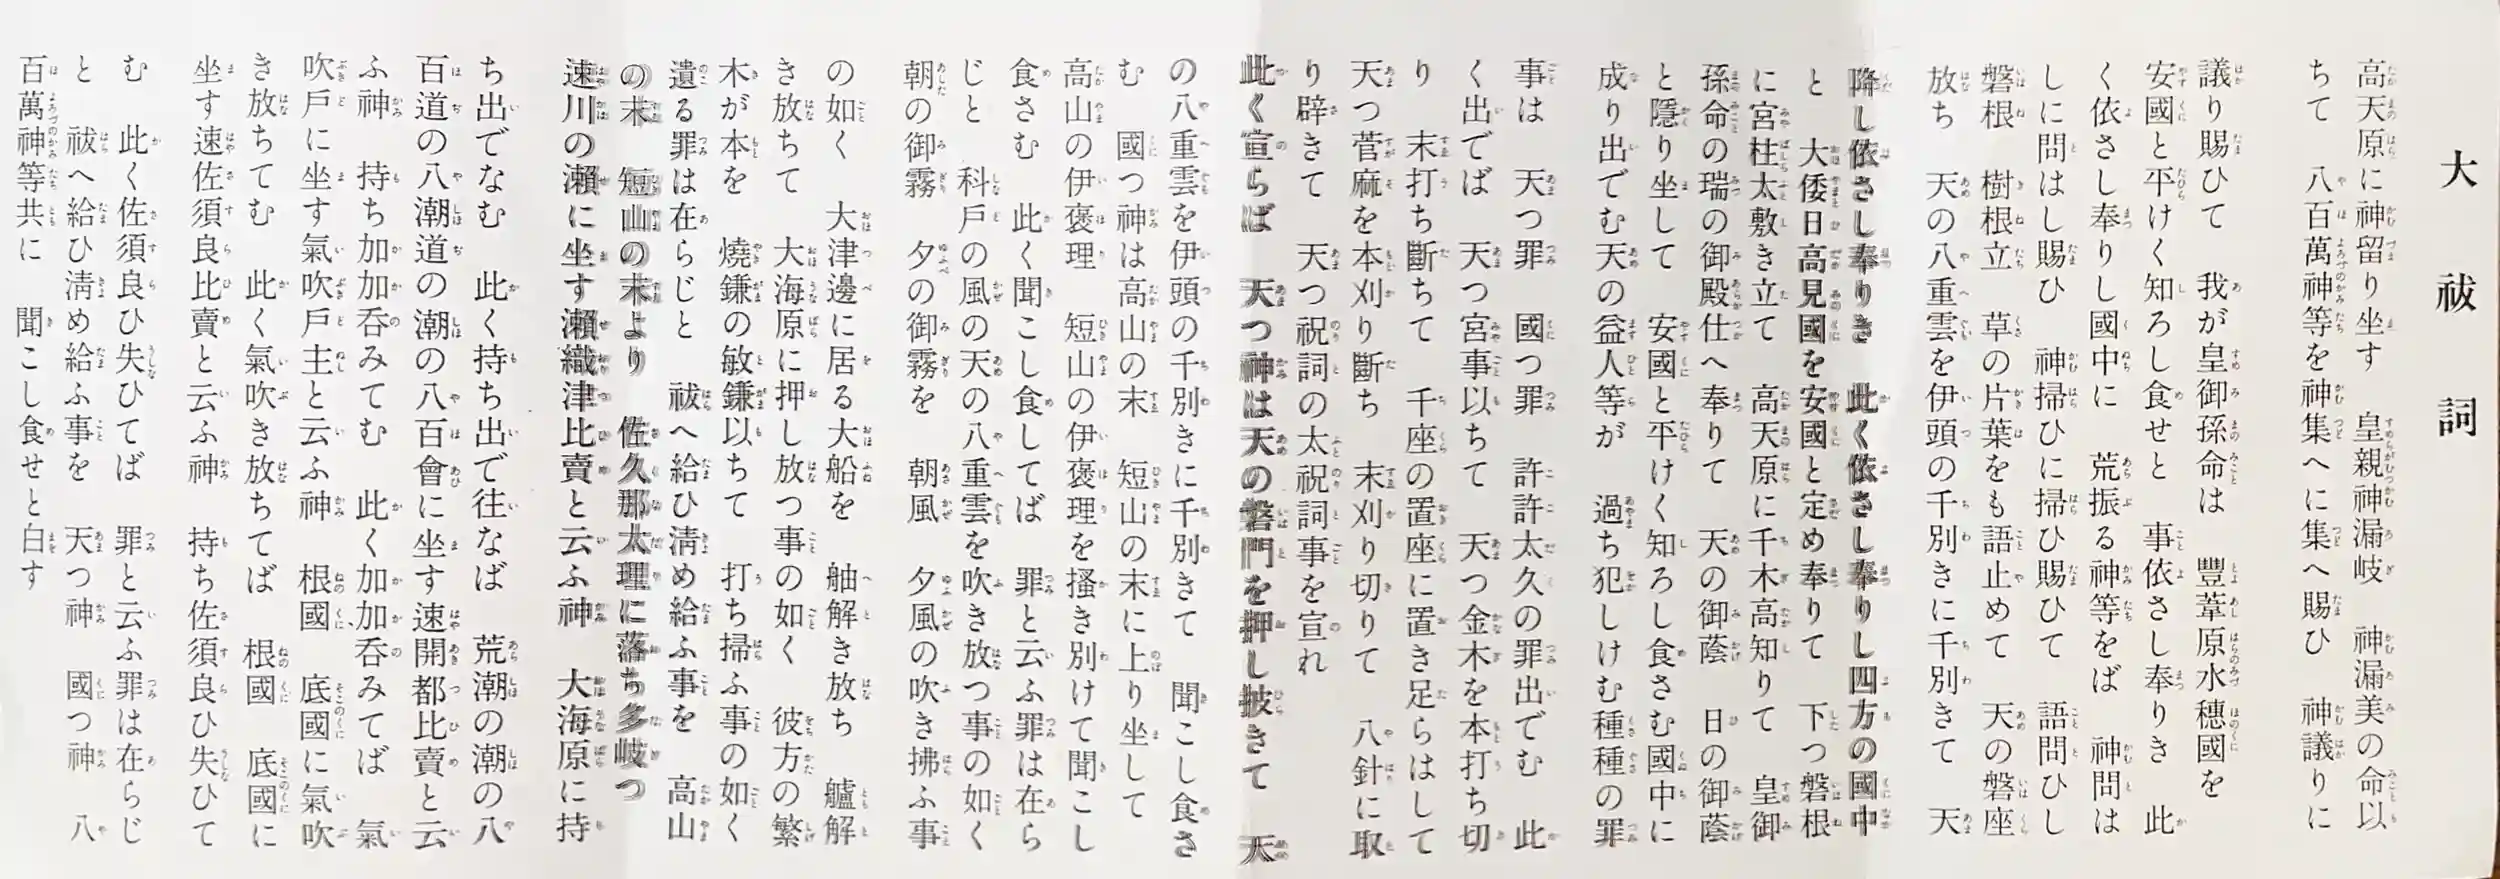 大祓詞
高天原に神留り坐す　皇親神漏岐　神漏美の命以
ちて　八百萬神等を神集へに集へ賜ひ　神議りに
議り賜ひて　我が皇御孫命は　豐葦原水穗國を
安國と平けく知ろし食せと　事依さし奉りき　此
く依さし奉りし國中に　荒振る神等をば　神問は
しに問はし賜ひ　神掃ひに掃ひ賜ひて　語問ひし
磐根　樹根立　草の片葉をも語止めて　天の磐座
放ち　天の八重雲を伊頭の千別きに千別きて　天
降し依さし奉りき　此く依さし奉りし四方の國中
と　大倭日高見國を安國と定め奉りて　下つ磐根
に宮柱太敷き立て　高天原に千木高知りて　皇御
孫命の瑞の御殿仕へ奉りて　天の御蔭　日の御蔭
と隱り坐して　安國と平けく知ろし食さむ國中に
成り出でむ天の益人等が　過ち犯しけむ種種の罪
事は　天つ罪　國つ罪　許許太久の罪出でむ　此
く出でば　天つ宮事以ちて　天つ金木を本打ち切
り　末打ち斷ちて　千座の置座に置き足らはして
天つ菅麻を本刈り斷ち　末刈り切りて　八針に取
り辟きて　天つ祝詞の太祝詞事を宣れ
此く宣らば　天つ神は天の磐門を押し披きて　天
の八重雲を伊頭の千別きに千別きて　聞こし食さ
む　國つ神は高山の末　短山の末に上り坐して
高山の伊褒理　短山の伊褒理を搔き別けて聞こし
食さむ　此く聞こし食してば　罪と云ふ罪は在ら
じと　科戶の風の天の八重雲を吹き放つ事の如く
朝の御霧　夕の御霧を　朝風　夕風の吹き拂ふ事
の如く　大津邊に居る大船を　舳解き放ち　艫解
き放ちて　大海原に押し放つ事の如く　彼方の繁
木が本を　燒鎌の敏鎌以ちて　打ち掃ふ事の如く
遺る罪は在らじと　祓へ給ひ淸め給ふ事を　高山
の末　短山の末より　佐久那太理に落ち多岐つ
速川の瀨に坐す瀨織津比賣と云ふ神　大海原に持
ち出でなむ　此く持ち出で往なば　荒潮の潮の八
百道の八潮道の潮の八百會に坐す速開都比賣と云
ふ神　持ち加加呑みてむ　此く加加呑みてば　氣
吹戶に坐す氣吹戶主と云ふ神　根國　底國に氣吹
き放ちてむ　此く氣吹き放ちてば　根國　底國に
坐す速佐須良比賣と云ふ神　持ち佐須良ひ失ひて
む　此く佐須良ひ失ひてば　罪と云ふ罪は在らじ
と　祓へ給ひ淸め給ふ事を　天つ神　國つ神　八
百萬神等共に　聞こし食せと白す